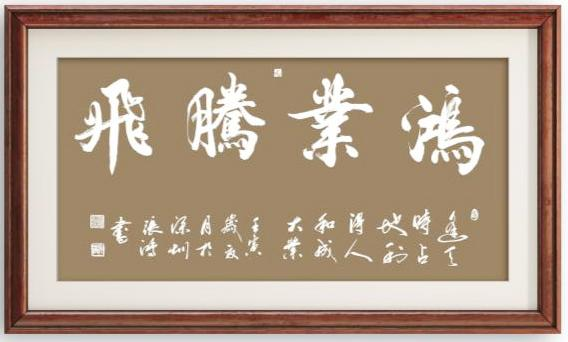 鴻業騰飛
逢天
時占
地利
得人
和成
大業
壬寅
歲夏
月於
深圳
張
書